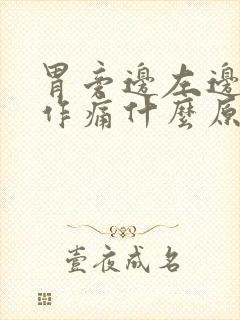 胃旁邊左邊
作痛什麼原
壹夜成名